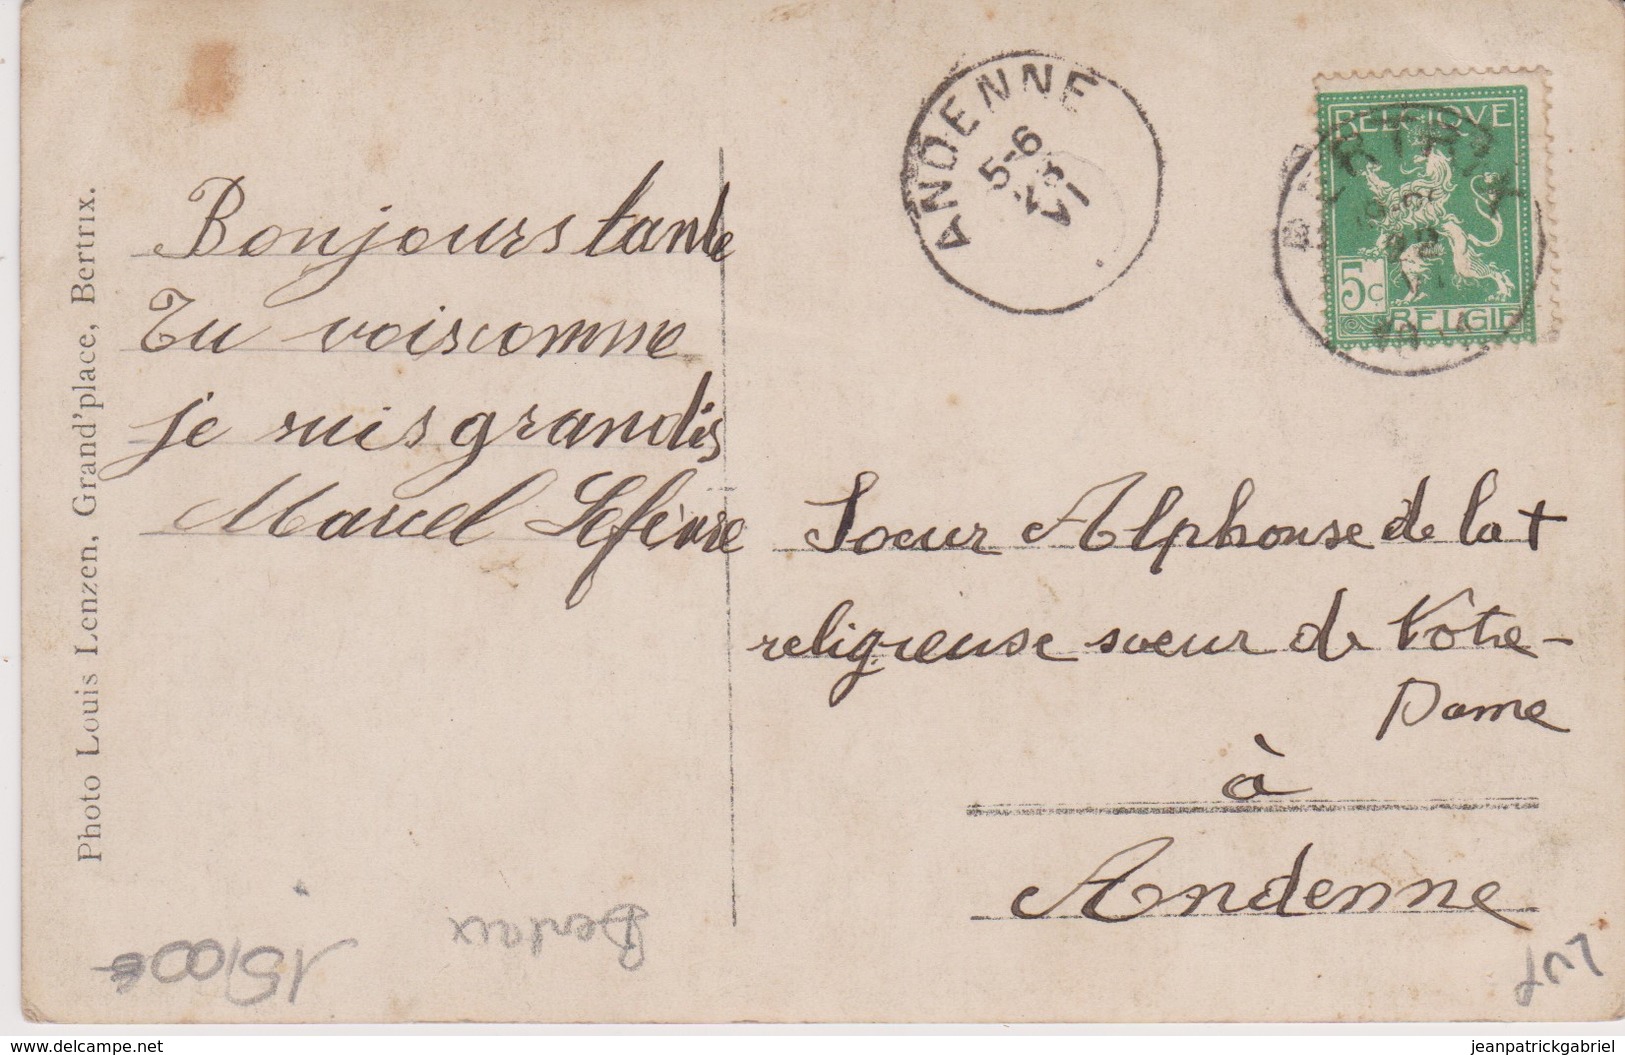 Photo Louis Lenzen, Grand'place, Bertrix.
Bonjours tante
Tu vois comme
je suis grandis
Marcel Lefèvre
ANDENNE
5-6
23
VI
BERTRIX
22
BELGIQUE
5c
BELGIË
Soeur Alphonse de la +
religieuse soeur de Nôtre-
Dame
à
Andenne
Bertrix
15,00€
Lux
www.delcampe.net
jeanpatrickgabriel